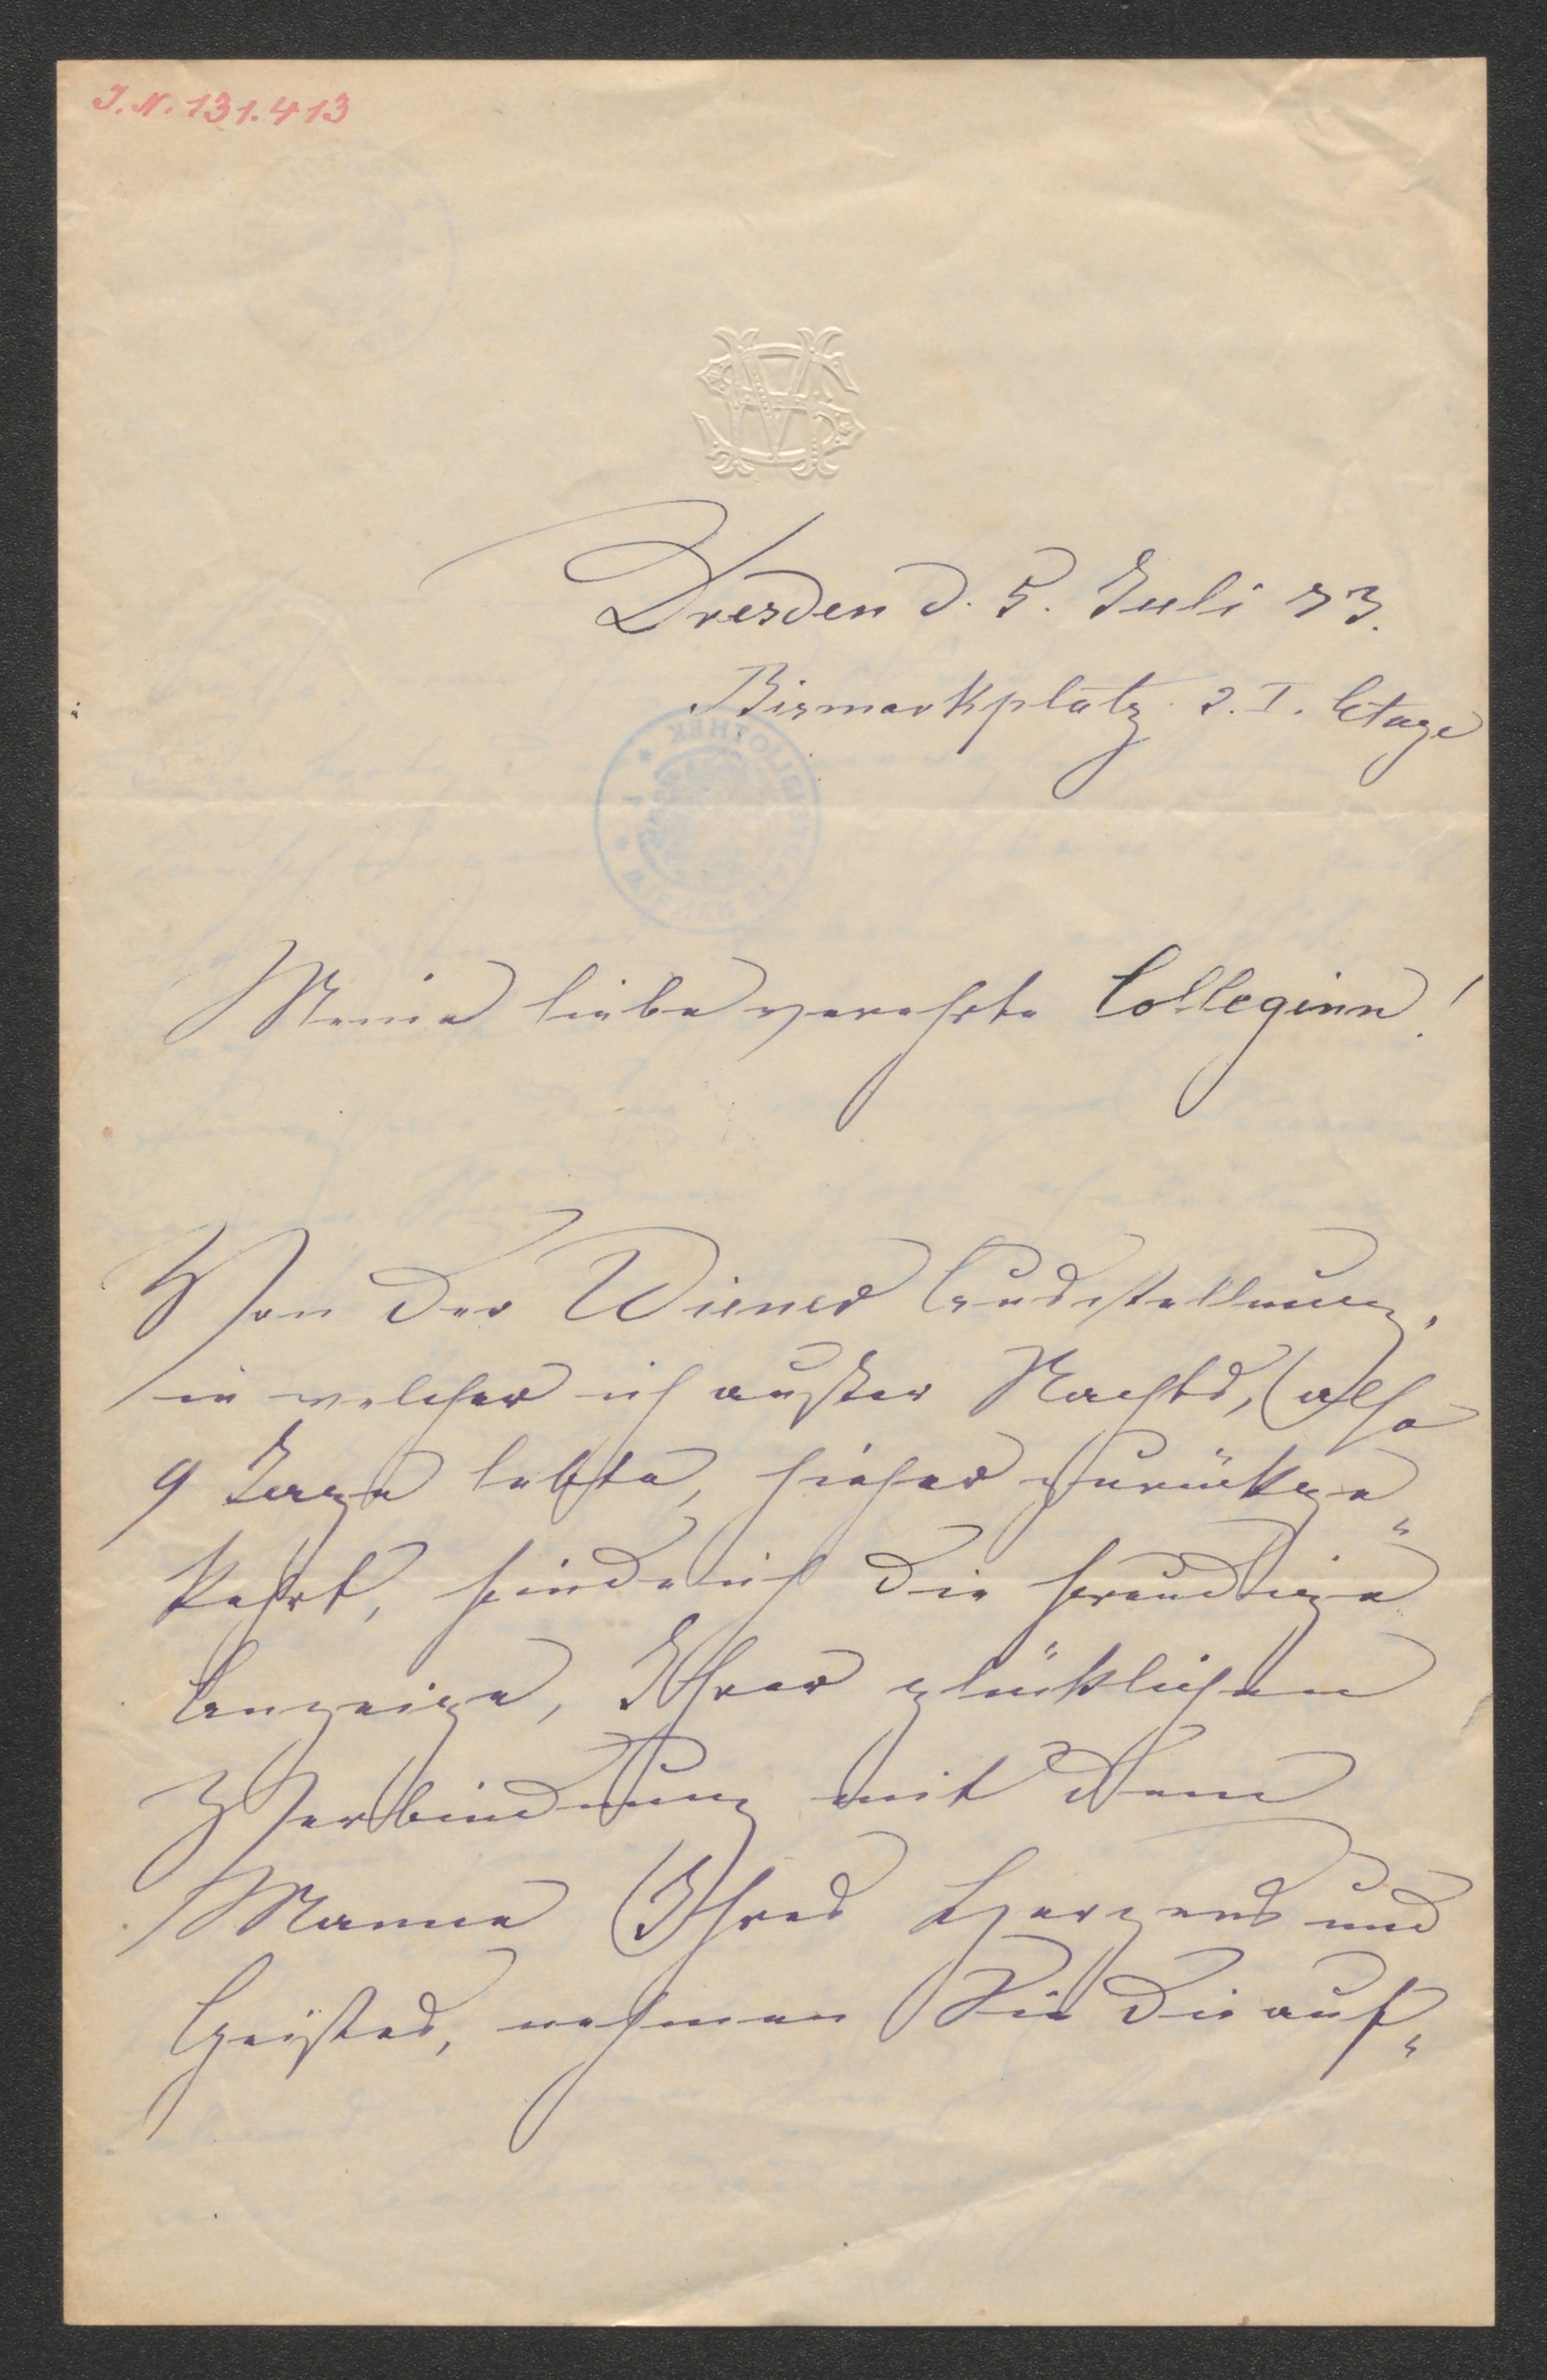 J. N. 131.413
Dresden d. 5. Juli 73.
Bismarkplatz 2. I. Etage
Meine liebe verehrte Colleginn!
Von der Wiener Ausstellung,
in welcher ich außer Nachts, (also
9 Tage lebte, hieher zurückge„
kehrt, finde ich die freudige
Anzeige, Ihrer glücklichen
Verbindung mit dem
Manne Ihres Herzens und
Geistes, nehmen Sie die auf„